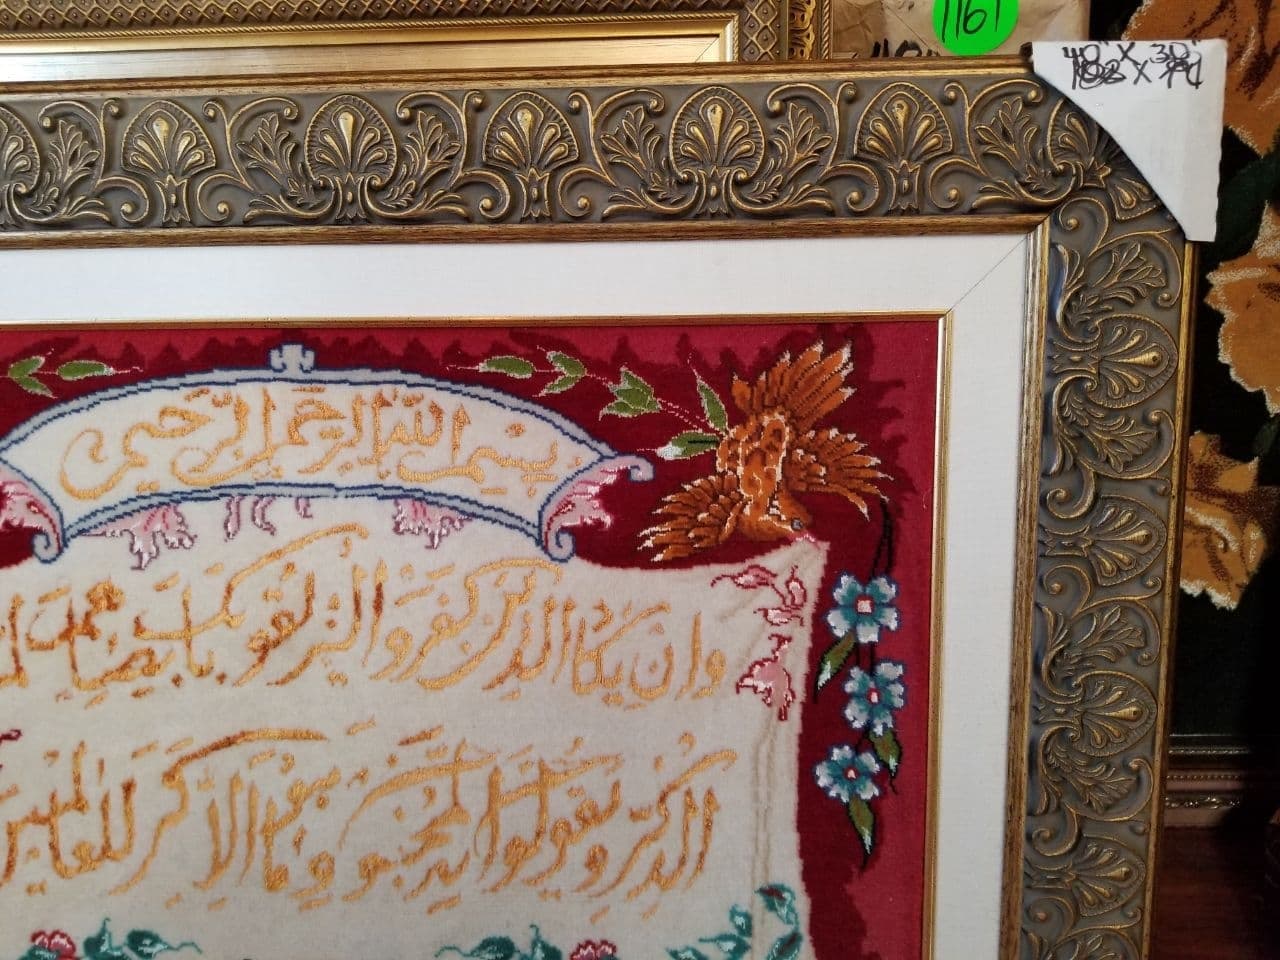 1161
40" X 30"
بسم الله الرحمن الرحيم
وان يكاد الذين كفروا ليزلقونك بابصارهم لما
الذكر و يقولون انه لمجنون و ما هو الا ذكر للعالمين